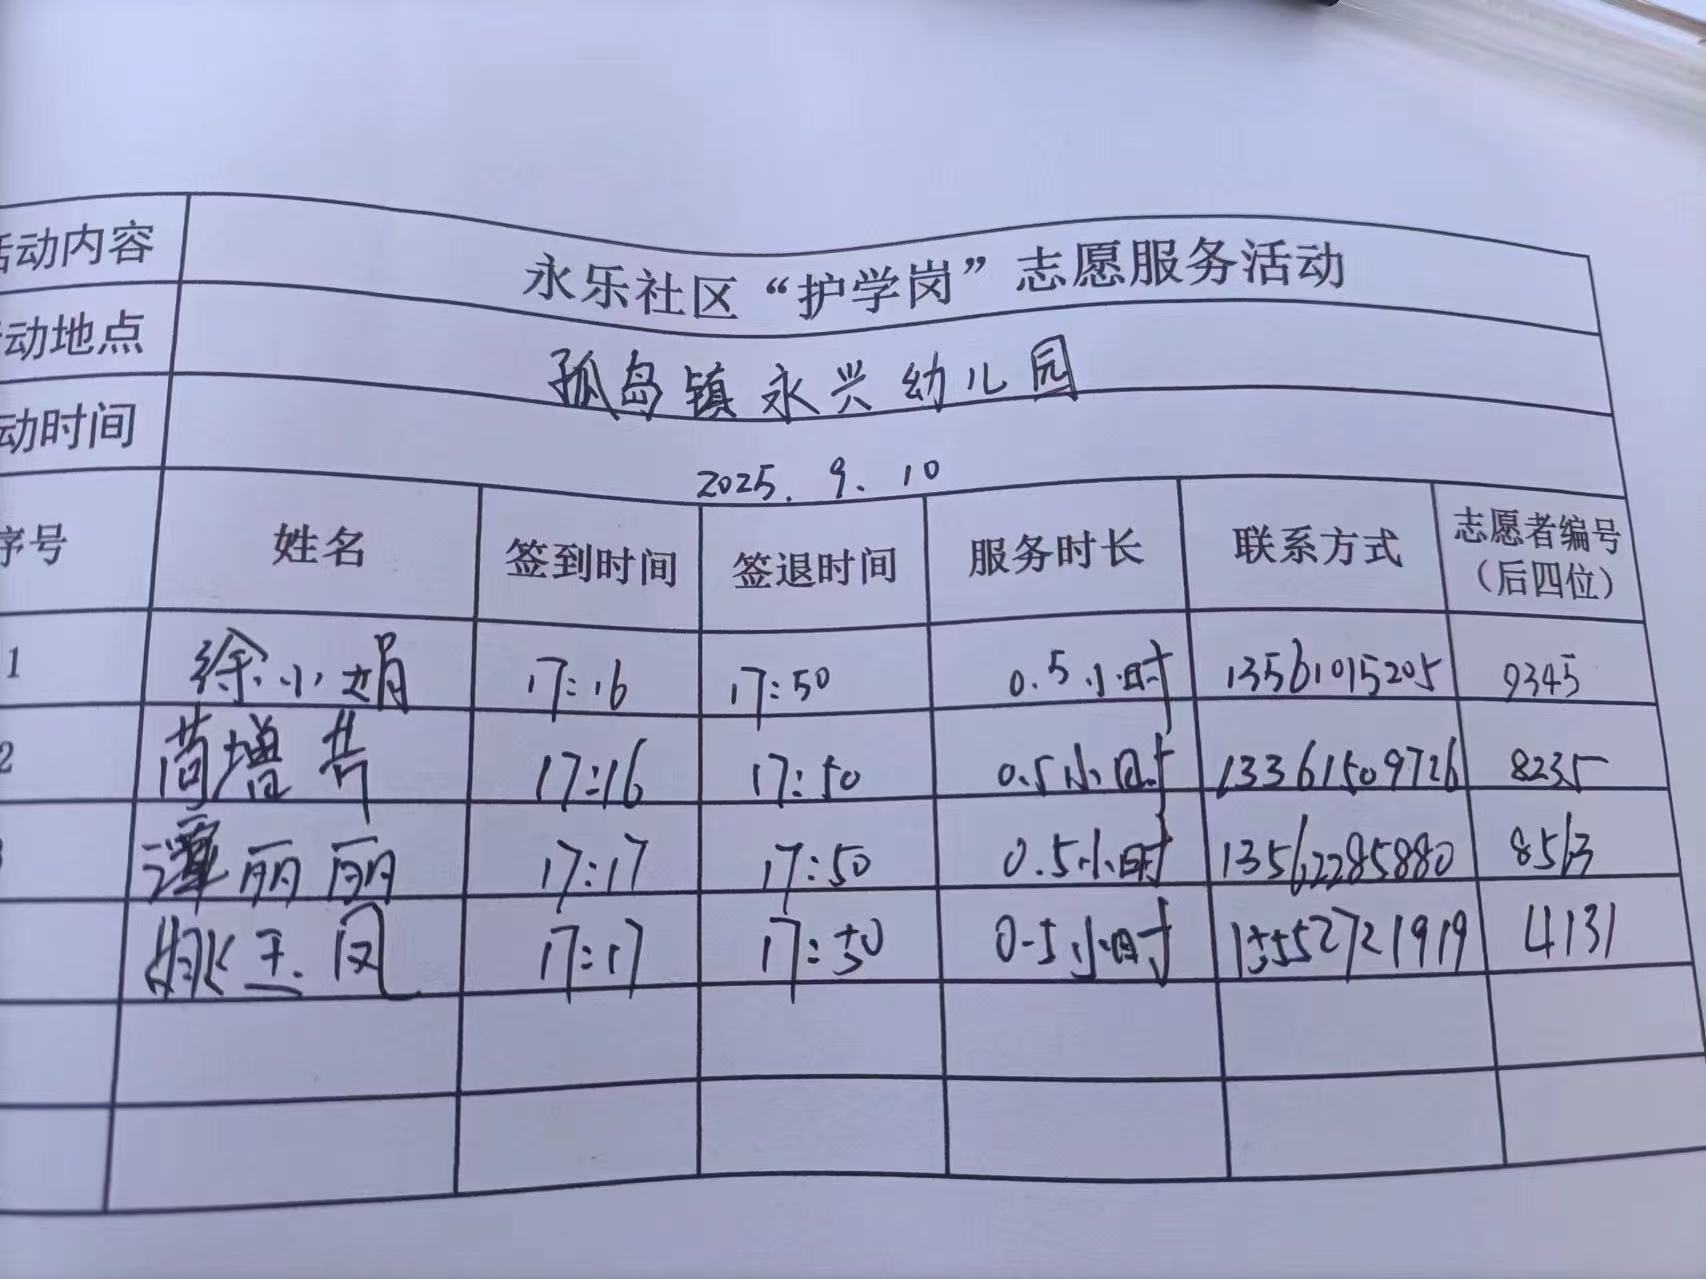 活动内容 永乐社区“护学岗”志愿服务活动
动地点 孤岛镇永兴幼儿园
动时间 2025.9.10
序号 姓名 签到时间 签退时间 服务时长 联系方式 志愿者编号（后四位）
1 徐小娟 17:16 17:50 0.5小时 13561015205 9345
2 增 17:16 17:50 0.5小时 13361509726 8235
谭丽丽 17:17 17:50 0.5小时 13562285880 8563
姚玉凤 17:17 17:50 0.5小时 15552721919 4131